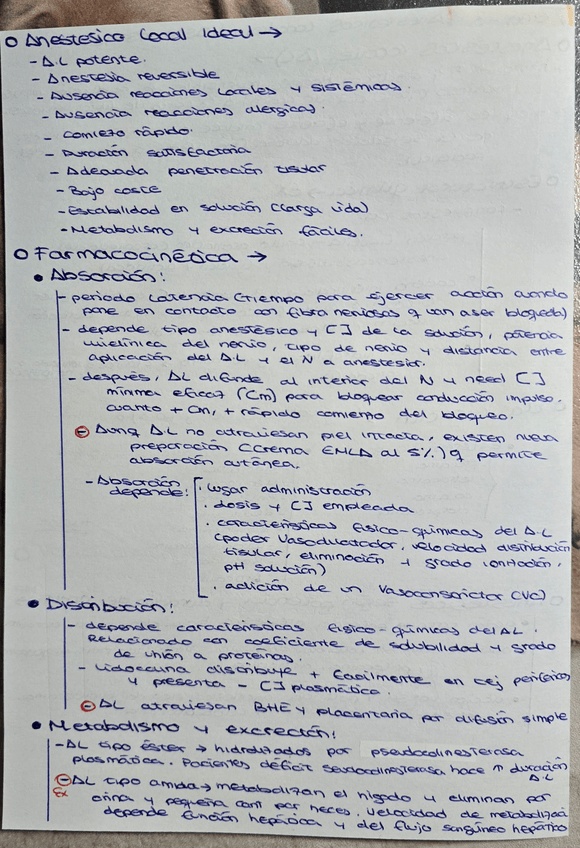 O Anestésico Local Ideal →
- A.L potente.
- Anestesia reversible
- Ausencia reacciones locales y sistémicas.
- Ausencia reacciones alérgicas.
- Comiezo rápido.
- Duración satisfactoria
- Adecuada penetración tisular
- Bajo coste
- Estabilidad en solución (larga vida)
- Metabolismo y excreción fáciles.
O Farmacocinética →
• Absorción:
- periodo latencia (tiempo para ejercer acción cuando
pone en contacto con fibra nerviosas q van a ser bloqueda)
- depende tipo anestésico y [] de la solución, potencia
mielínica del nervio, tipo de nervio y distancia entre
aplicación del AL y el N a anestesiar.
- después, AL difunde al interior del N y need []
mínima eficaz (Cm) para bloquear conducción impulso.
cuanto + Cm, + rápido comienzo del bloqueo.
⊖ Aunq AL no atraviesan piel intacta, existen nueva
preparación (crema EMLA al 5%) q permite
absorción cutánea.
- Absorción depende:
· lugar administración
· dosis y [] empleada
· características físico-químicas del A.L
(poder vasodilatador, velocidad distribución
tisular, eliminación y grado ionización,
pH solución)
· adición de un vasoconstrictor (VC)
• Distribución:
- depende características físico-químicas del AL.
Relacionado con coeficiente de solubilidad y grado
de unión a proteínas.
- lidocaína distribuye + fácilmente en tej periféricos
y presenta - [] plasmática.
⊖ AL atraviesan BHE y placentaria por difusión simple
• Metabolismo y excreción:
- AL tipo éster → hidrolizados por pseudocolinesterasa
plasmática. Pacientes déficit seudocolinesterasa hace ↑ duración
AL
⊖ AL tipo amida → metabolizan el hígado y eliminan por
Ex orina y pequeña cant por heces. Velocidad de metabolizaci
depende función hepática y del flujo sanguíneo hepático